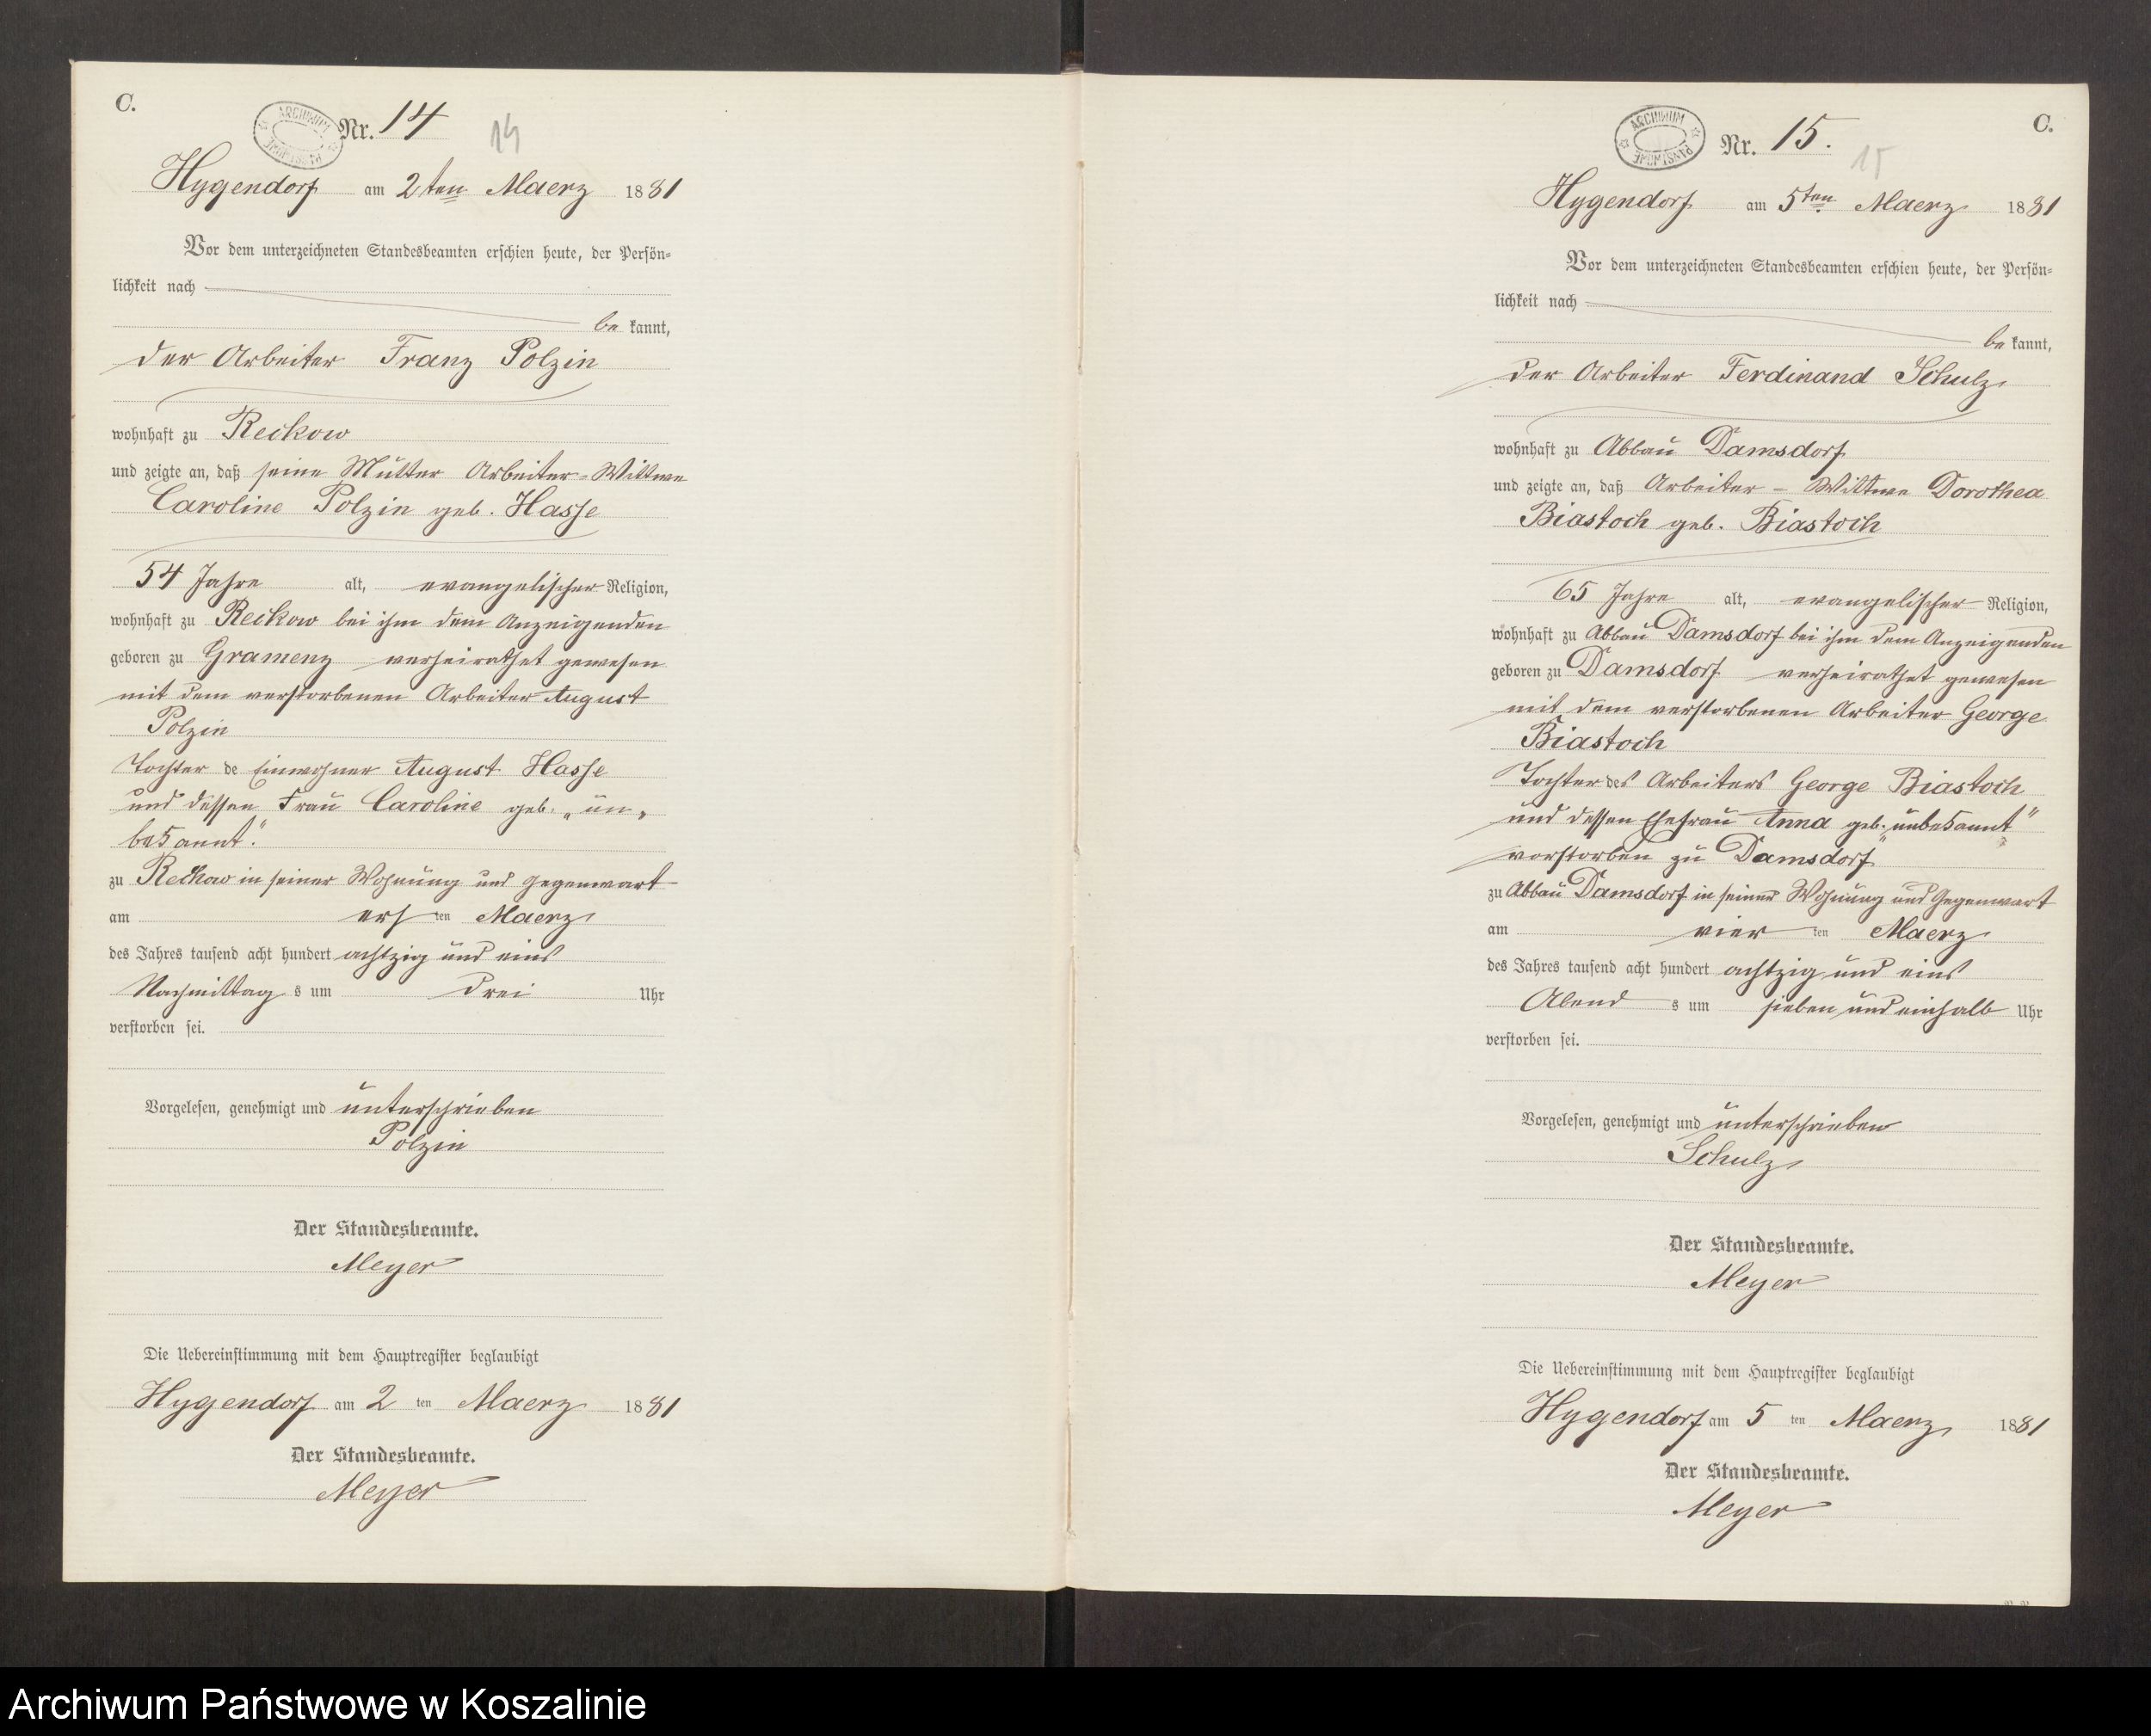 C.
ARCHIWUM PAŃSTWOWE
Nr. 14
14
Hygendorf am 2ten Maerz 1881
Vor dem unterzeichneten Standesbeamten erschien heute, der Persön=
lichkeit nach
be kannt,
der Arbeiter Franz Polzin
wohnhaft zu Reckow
und zeigte an, daß seine Mutter Arbeiter-Wittwe
Caroline Polzin geb. Hasse
54 Jahre alt, evangelischer Religion,
wohnhaft zu Reckow bei ihm dem Anzeigenden
geboren zu Gramenz verheirathet gewesen
mit dem verstorbenen Arbeiter August
Polzin
Tochter de Einwohner August Hasse
und dessen Frau Caroline geb. „un„
bekannt."
zu Reckow in seiner Wohnung und Gegenwart
am ersten Maerz
des Jahres tausend acht hundert achtzig und eins
Nachmittag s um drei Uhr
verstorben sei.
Vorgelesen, genehmigt und unterschrieben
Polzin
Der Standesbeamte.
Meyer
Die Uebereinstimmung mit dem Hauptregister beglaubigt
Hygendorf am 2 ten Maerz 1881
Der Standesbeamte.
Meyer
C.
ARCHIWUM PAŃSTWOWE
Nr. 15.
15
Hygendorf am 5ten Maerz 1881
Vor dem unterzeichneten Standesbeamten erschien heute, der Persön=
lichkeit nach
be kannt,
der Arbeiter Ferdinand Schulz
wohnhaft zu Abbau Damsdorf
und zeigte an, daß Arbeiter - Wittwe Dorothea
Biastoch geb. Biastoch
65 Jahre alt, evangelischer Religion,
wohnhaft zu Abbau Damsdorf bei ihm dem Anzeigenden
geboren zu Damsdorf verheirathet gewesen
mit dem verstorbenen Arbeiter George
Biastoch
Tochter des Arbeiters George Biastoch
und dessen Ehefrau Anna geb. „unbekannt"
verstorben zu Damsdorf
zu Abbau Damsdorf in seiner Wohnung und Gegenwart
am vier ten Maerz
des Jahres tausend acht hundert achtzig und eins
Abend s um sieben und einhalb Uhr
verstorben sei.
Vorgelesen, genehmigt und unterschrieben
Schulz
Der Standesbeamte.
Meyer
Die Uebereinstimmung mit dem Hauptregister beglaubigt
Hygendorf am 5 ten Maerz 1881
Der Standesbeamte.
Meyer
Archiwum Państwowe w Koszalinie